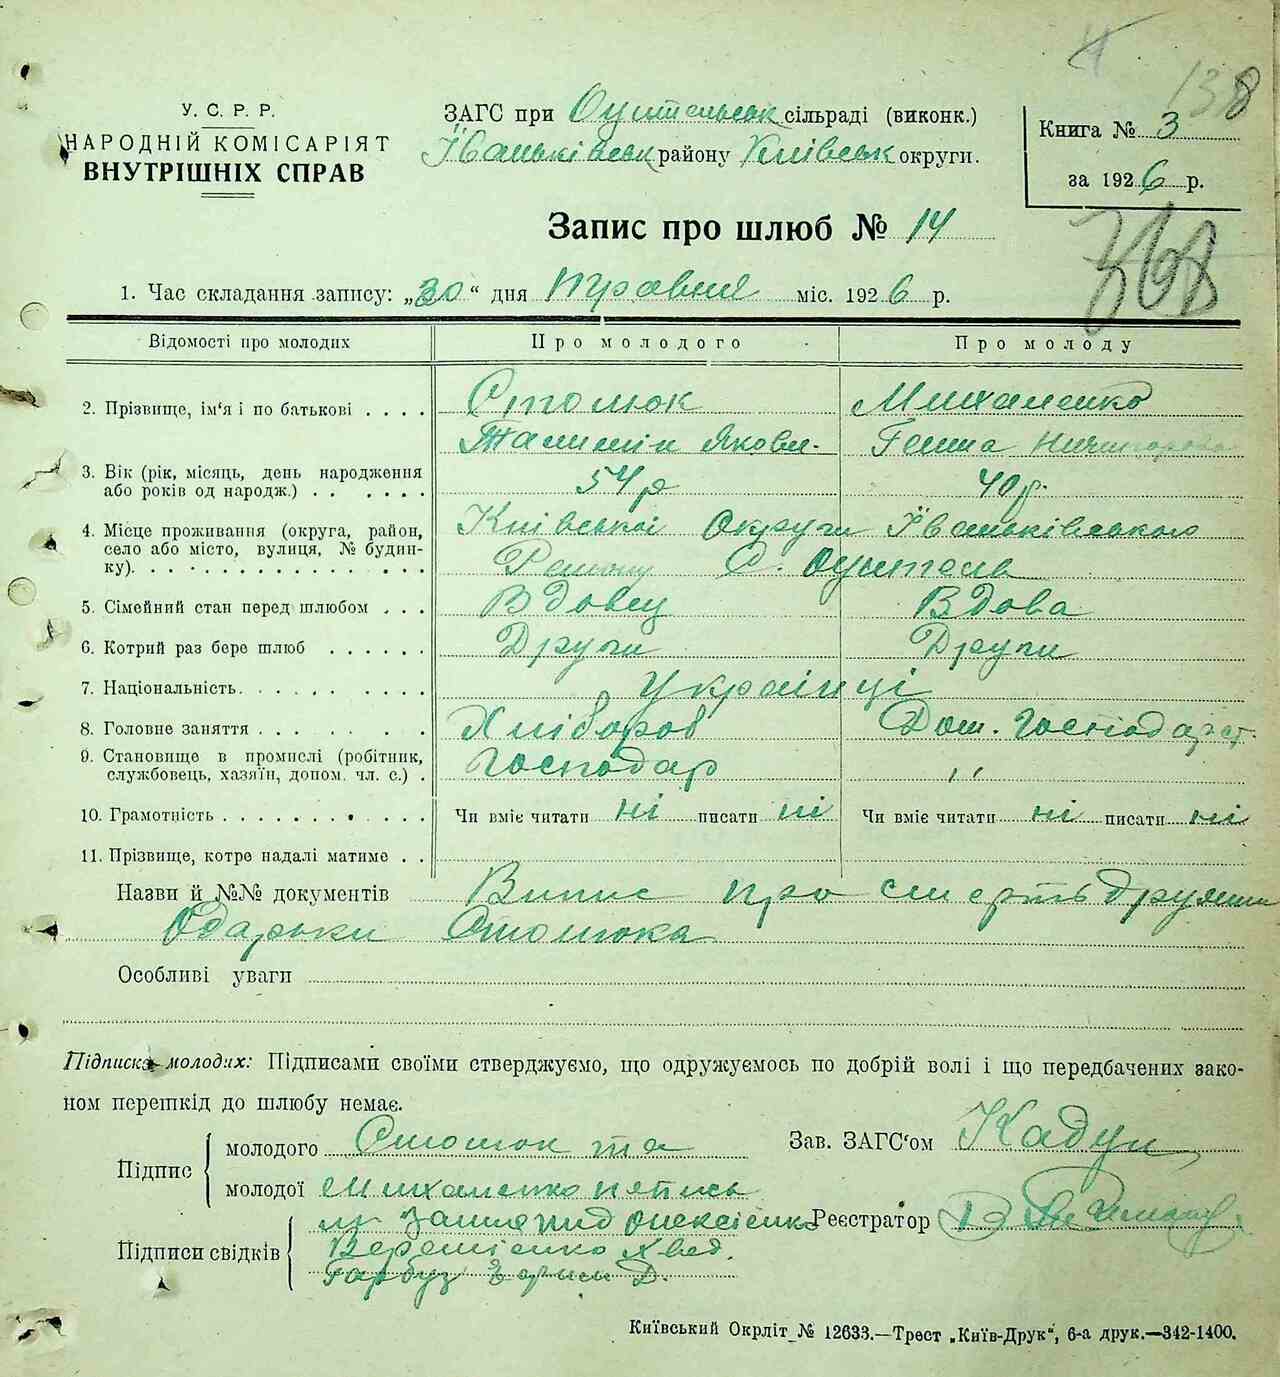 138
У. С. Р. Р.
НАРОДНІЙ КОМІСАРІЯТ
ВНУТРІШНІХ СПРАВ
ЗАГС при Оцительськ сільраді (виконк.)
Їваньківськ району Київськ округи.
Книга № 3
за 1926 р.
Запис про шлюб № 14
368
1. Час складання запису: „30“ дня Травня міс. 1926 р.
Відомості про молодих Про молодого Про молоду
2. Прізвище, ім'я і по батькові . . . . Столюк Михаленко
Якови- Ганна
3. Вік (рік, місяць, день народження
або років од народж.) . . . . . . 54 р 40 р.
4. Місце проживання (округа, район, Київської Округи Їваньківського
село або місто, вулиця, № будин-
ку). Району С. Оцитель
5. Сімейний стан перед шлюбом . . . Вдовец Вдова
6. Котрий раз бере шлюб . . . . . . Други Други
7. Національність. . . . . . . . . Українці
8. Головне заняття . . . . . . . . Хлібороб Дом. Господарст.
9. Становище в промислі (робітник,
службовець, хазяїн, допом. чл. с.) . Господар ,,
10. Грамотність . . . . . . . . . . Чи вміє читати ні писати ні Чи вміє читати ні писати ні
11. Прізвище, котре надалі матиме . .
Назви й №№ документів Випис про смерть дружини
Одарьки Столюка
Особливі уваги
Підписка молодих: Підписами своїми стверджуємо, що одружуємось по добрій волі і що передбачених зако-
ном перешкід до шлюбу немає.
Підпис
молодого Столюк та
молодої Михаленко
Зав. ЗАГС'ом Кадун
Підписи свідків
Олексієнко
Реєстратор
Гарбуз Д.
Київський Окрліт № 12633.—Трест „Київ-Друк“, 6-а друк.—342-1400.